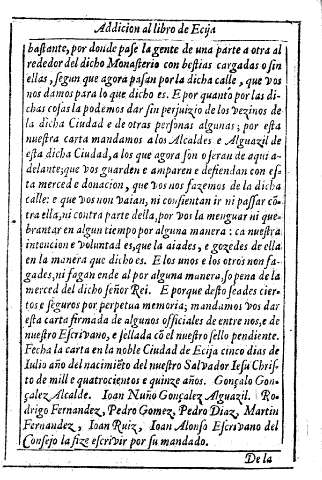 Addicion al libro de Ecija
bastante, por donde pase la gente de una parte a otra al
rededor del dicho Monasterio con bestias cargadas o sin
ellas, segun que agora pasan por la dicha calle, que vos
nos damos para lo que dicho es. E por quanto por las di-
chas cosas la podemos dar sin perjuizio de los vezinos de
la dicha Ciudad e de otras personas algunas; por esta
nuestra carta mandamos a los Alcaldes e Alguazil de
esta dicha Ciudad, a los que agora son o seran de aqui a-
delante; que vos guarden e amparen e defiendan con es-
ta merced e donacion, que vos nos fazemos de la dicha
calle: e que vos non vaian, ni consientan ir ni passar cō-
tra ella, ni contra parte della, por vos la menguar ni que-
brantar en algun tiempo por alguna manera: ca nuestra
intencion e voluntad es, que la aiades, e gozedes de ella
en la manera que dicho es. E los unos e los otros non fa-
gades, ni fagan ende al por alguna manera, so pena de la
merced del dicho señor Rei. E porque desto seades cier-
tos e seguros por perpetua memoria; mandamos vos dar
esta carta firmada de algunos officiales de entre nos, e de
nuestro Escrivano, e sellada cō el nuestro sello pendiente.
Fecha la carta en la noble Ciudad de Ecija cinco dias de
Iulio año del nacimiēto del nuestro Salvador Iesu Chris-
to de mill e quatrocientos e quinze años. Gonçalo Gon-
çalez Alcalde. Ioan Nuño Gonçalez Alguazil. Ro-
drigo Fernandez, Pedro Gomez, Pedro Diaz, Martin
Fernandez, Ioan Ruiz, Ioan Alonso Escrivano del
Consejo la fize escrivir por su mandado.
De la